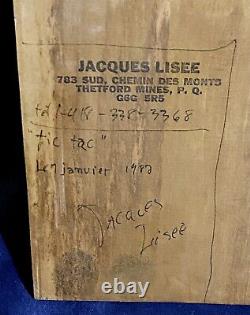 JACQUES LISEE
783 SUD, CHEMIN DES MONTS
THETFORD MINES, P. Q.
G6G 5R5
tél-418-338-3368
"tic tac"
Le 7 janvier 1982
Jacques
Liseé